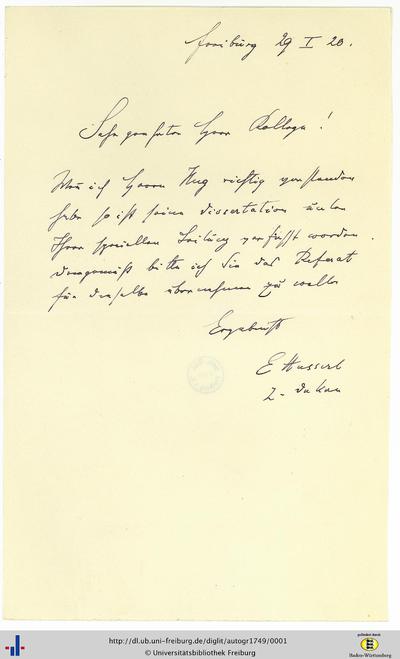 Freiburg 29 I 20.
Sehr geehrter Herr Kollege!
Wie ich Herrn Hug richtig verstanden
habe so ist seine Dissertation unter
Ihrer speziellen Leitung verfasst worden.
Demgemäss bitte ich Sie das Referat
für dieselbe übernehmen zu wollen
Ergebenst
E Husserl
z. Dekan
http://dl.ub.uni-freiburg.de/diglit/autogr1749/0001
© Universitätsbibliothek Freiburg
gefördert durch
Baden-Württemberg